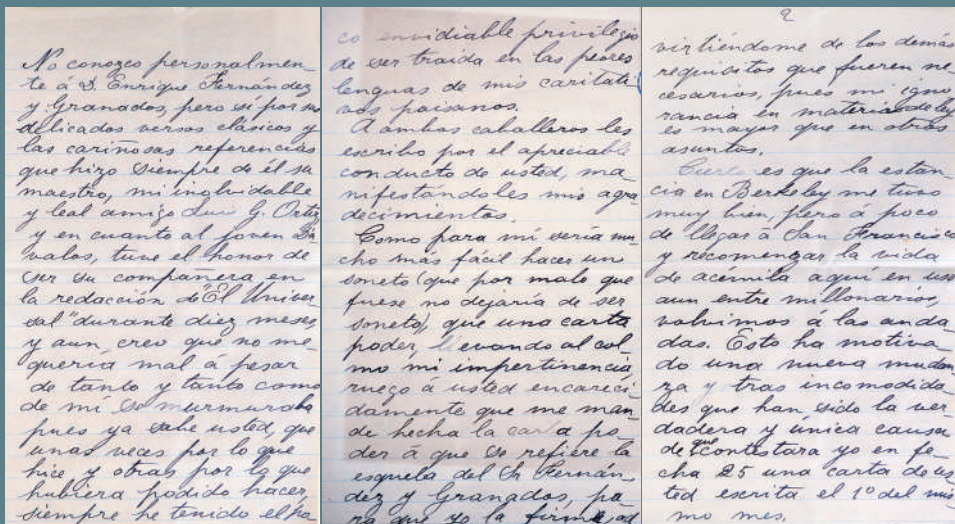 No conozco personalmen-
te á D. Enrique Fernández
y Granados, pero si por sus
delicados versos clásicos y
las cariñosas referencias
que hizo siempre de él su
maestro, mi inolvidable
y leal amigo Luis G. Ortiz
y en cuanto al joven Dá-
valos, tuve el honor de
ser su compañera en
la redacción de "El Univer
sal" durante diez meses,
y aun creo que no me
quería mal á pesar
de tanto y tanto como
de mí se murmuraba
pues ya sabe usted, que
unas veces por lo que
hice y otras por lo que
hubiera podido hacer,
siempre he tenido el po
co envidiable privilegio
de ser traída en las peores
lenguas de mis caritati
vos paisanos.
A ambos caballeros les
escribo por el apreciable
conducto de usted, ma-
nifestándoles mis agra
decimientos.
Como para mí sería mu
cho más fácil hacer un
soneto (que por malo que
fuese no dejaría de ser
soneto), que una carta
poder, llevando al col
mo mi impertinencia,
ruego á usted encareci
damente que me man
de hecha la carta po-
der á que se refiere la
esquela del Sr. Fernán-
dez y Granados, pa
ra que yo la firme, ad
2
virtiéndome de los demás
requisitos que fueren ne-
cesarios, pues mi igno
rancia en materias de ley
es mayor que en otros
asuntos.
Cierto es que la estan-
cia en Berkeley me tuvo
muy bien, pero á poco
de llegar á San Francisco
y recomenzar la vida
de acémila aquí en uso
aun entre millonarios,
volvimos á las anda-
das. Esto ha motiva-
do una nueva mudan
za y tras incomodida
des que han sido la ver
dadera y única causa
de que contestara yo en fe-
cha 25 una carta de us
ted escrita el 1º del mis
mo mes.